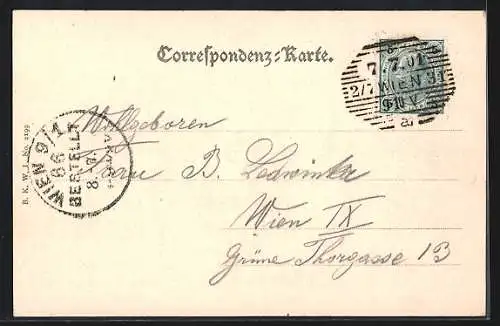 Correspondenz-Karte.
7.7.01
2/7 WIEN
Wohlgeboren
Frau B. Ledwinka
Wien IX
Grüne Thorgasse 13
WIEN 9/1
66
BESTELLT
8.7.
B. K. W. I. No. 2199